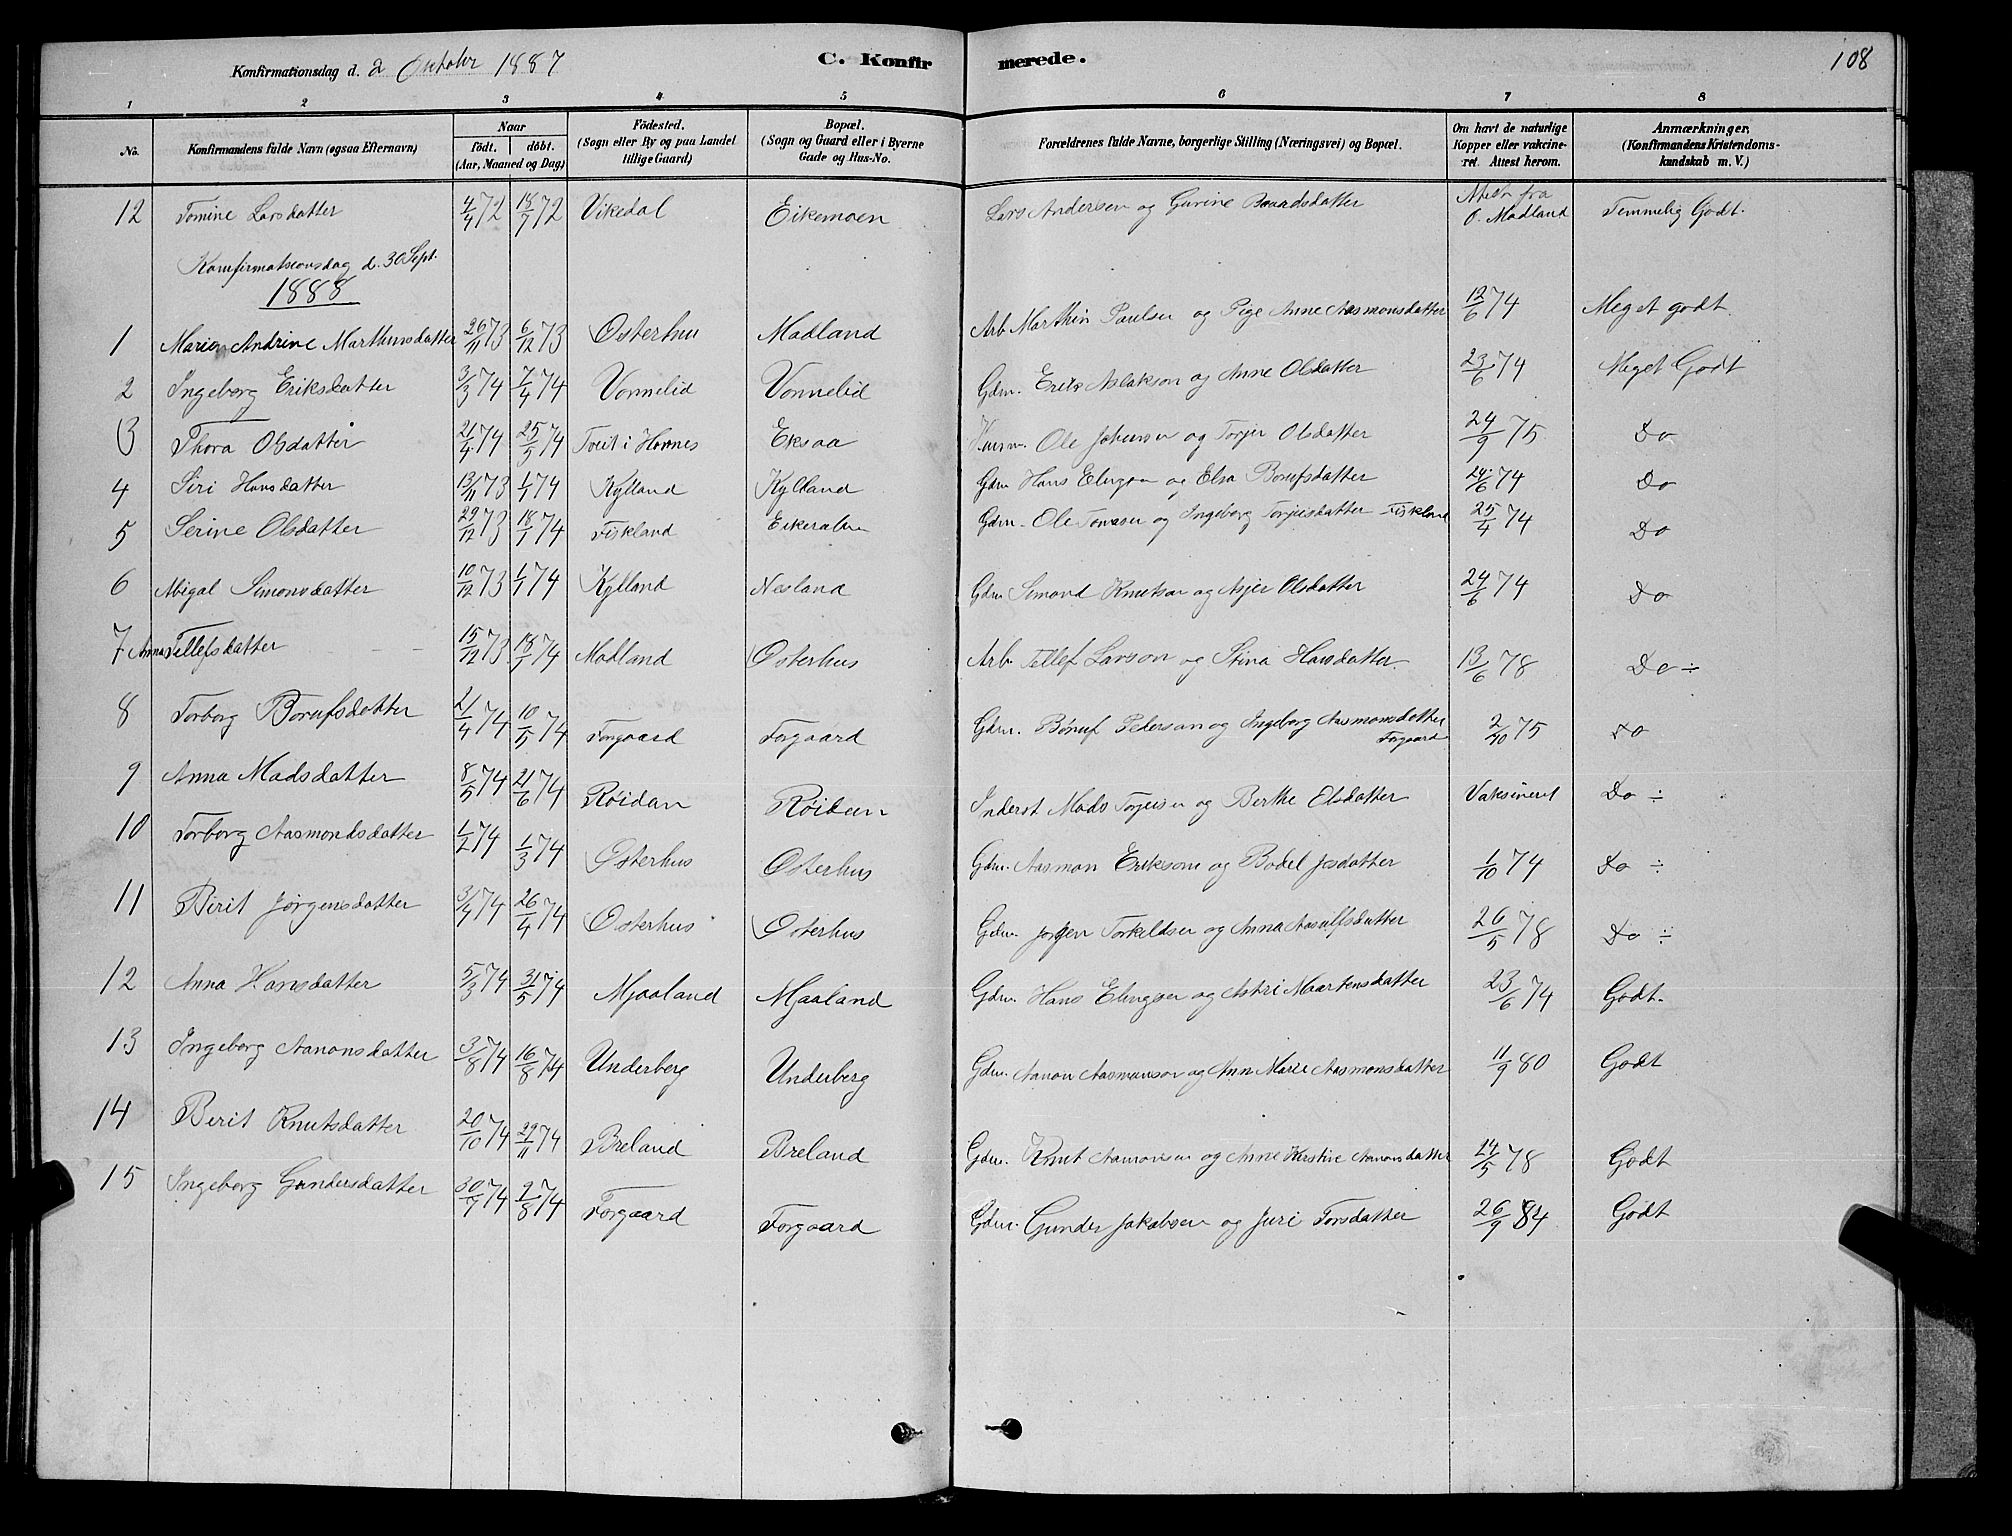 Konfirmationsdag d. 2 Oktobr 1887 C. Konfirmerede. 108
1 2 3 4 5 6 7 8
No. Konfirmandens fulde Navn (ogsaa Efternavn) Naar födt. döbt. (Aar, Maaned og Dag) Födested. (Sogn eller By og paa Landet tillige Gaard) Bopæl. (Sogn og Gaard eller i Byerne Gade og Hus-No. Forældrenes fulde Navne, borgerlige Stilling (Næringsvei) og Bopæl. Om havt de naturlige Kopper eller vakcineret. Attest herom. Anmærkninger. (Konfirmandens Kristendomskundskab m. V.)
12 Tomine Larsdatter 4/4 72 18/7 72 Vikedal Eikemoen Lars Andersen og Gurine Baardsdatter Attest fra O. Madland Temmelig Godt.
Konfirmationsdag d. 30 Sept.
1888
1 Maria Andrine Marthinsdatter 26/11 73 6/12 73 Osterhus Madland Arb Marthin Paulsen og Pige Anne Aasmonsdatter 12/6 74 Meget godt.
2 Ingeborg Eriksdatter 3/3 74 7/4 74 Vonnelid Vonnelid Gdm. Erik Aslakson og Anne Olsdatter 23/6 74 Meget Godt
3 Thora Olsdatter 21/4 74 25/5 74 Tveit i Hornes Eksaa Husm. Ole Johnsen og Torjer Olsdatter 24/9 75 Do
4 Siri Hansdatter 13/11 73 1/1 74 Kylland Kylland Gdm Hans Elingsen og Elsa Borufsdatter 24/6 74 Do
5 Serine Olsdatter 29/12 73 18/1 74 Fiskland Gdm. Ole Tomasen og Ingeborg Torjusdatter Fiskland 25/4 74 Do
6 Abigal Simonsdatter 10/12 73 1/1 74 Kylland Nesland Gdm Simond Knutson og Asjer Olsdatter 24/6 74 Do
7 Anna Tellefsdatter 15/12 73 18/1 74 Madland Osterhus Arb. Tellef Larson og Stina Hansdatter 13/6 78 Do ÷
8 Torborg Borufsdatter 21/4 74 10/5 74 Forgaard Forgaard Gdm. Børuf Pederson og Ingeborg Aasmonsdatter Forgaard 2/10 75 Do
9 Anna Madsdatter 8/5 74 21/6 74 Røidan Røidan Inderst Mads Torjusen og Berthe Elsdatter Vaksineret Do ÷
10 Torborg Aasmondsdatter 1/2 74 1/3 74 Osterhus Osterhus Gdm. Aasmon Erikson og Bodel Josdatter 1/10 74 Do ÷
11 Birit Jørgensdatter 3/4 74 26/4 74 Osterhus Osterhus Gdm. Jørgen Torkildsen og Anna Aasulfsdatter 26/5 78 Do ÷
12 Anna Hansdatter 5/3 74 31/5 74 Mjaaland Mjaaland Gdm. Hans Elingsen og Astri Maartensdatter 23/6 74 Godt.
13 Ingeborg Aanonsdatter 3/8 74 16/8 74 Underberg Underberg Gdm. Aanon Aasmunson og Ann Marie Aasmonsdatter 11/9 80 Godt
14 Berit Knutsdatter 20/10 74 29/11 74 Breland Breland Gdm. Knut Aanonsen og Anne Kirstine Aanonsdatter 24/5 78 Godt
15 Ingeborg Gundersdatter 30/7 74 2/8 74 Forgaard Forgaard Gdm. Gunder Jakobsen og Juri Torsdatter 26/9 84 Godt